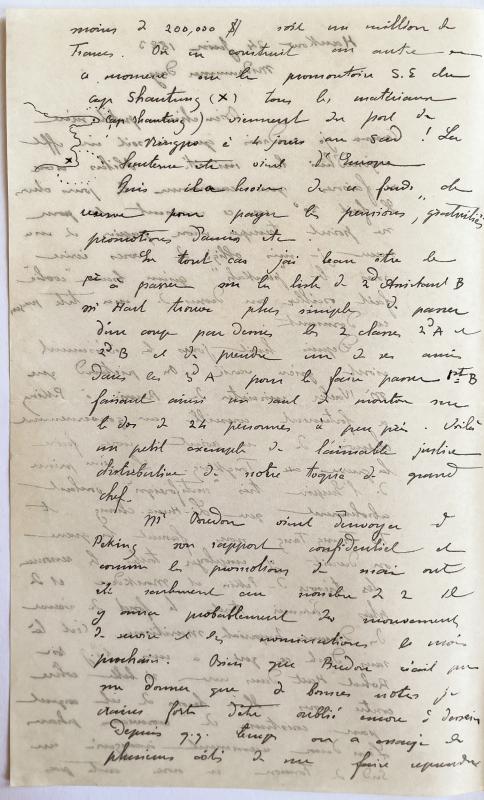 moins de 200,000 $ soit un million de
francs. On en construit un autre en
ce moment sur le promontoire S.E du
cap Shantung (X) tous les matériaux
(cap Shantung) viennent du port de
Ningpo à 4 jours au sud! La
lanterne etc vient d'Europe
Puis il a besoin de ce fonds de
réserve pour "payer" les pensions, gratuités
promotions d'amis etc.
En tout cas j'ai beau être le
1er à passer sur la liste de 2d Assistant B
Mr Hart trouve plus simple de passer
d'un coup par dessus les 2 classes 2d A et
2d B et de prendre un de ses amis
dans les 3d A pour le faire passer 1st B
faisant ainsi un saut de mouton sur
le dos de 24 personnes à peu près. Voilà
un petit exemple de l'aimable justice
distributive de notre toqué de grand
chef.
Mr Bredon vient d'envoyer à
Peking son rapport confidentiel et
comme les promotions de mai ont
été seulement au nombre de 2 il
y aura probablement des mouvements
de service et des nominations le mois
prochain. Bien que Bredon n'ait pu
me donner que de bonnes notes je
crains fort d'être oublié encore à dessein
Depuis q.q. temps on a essayé de
plusieurs côtés de me faire reprendre